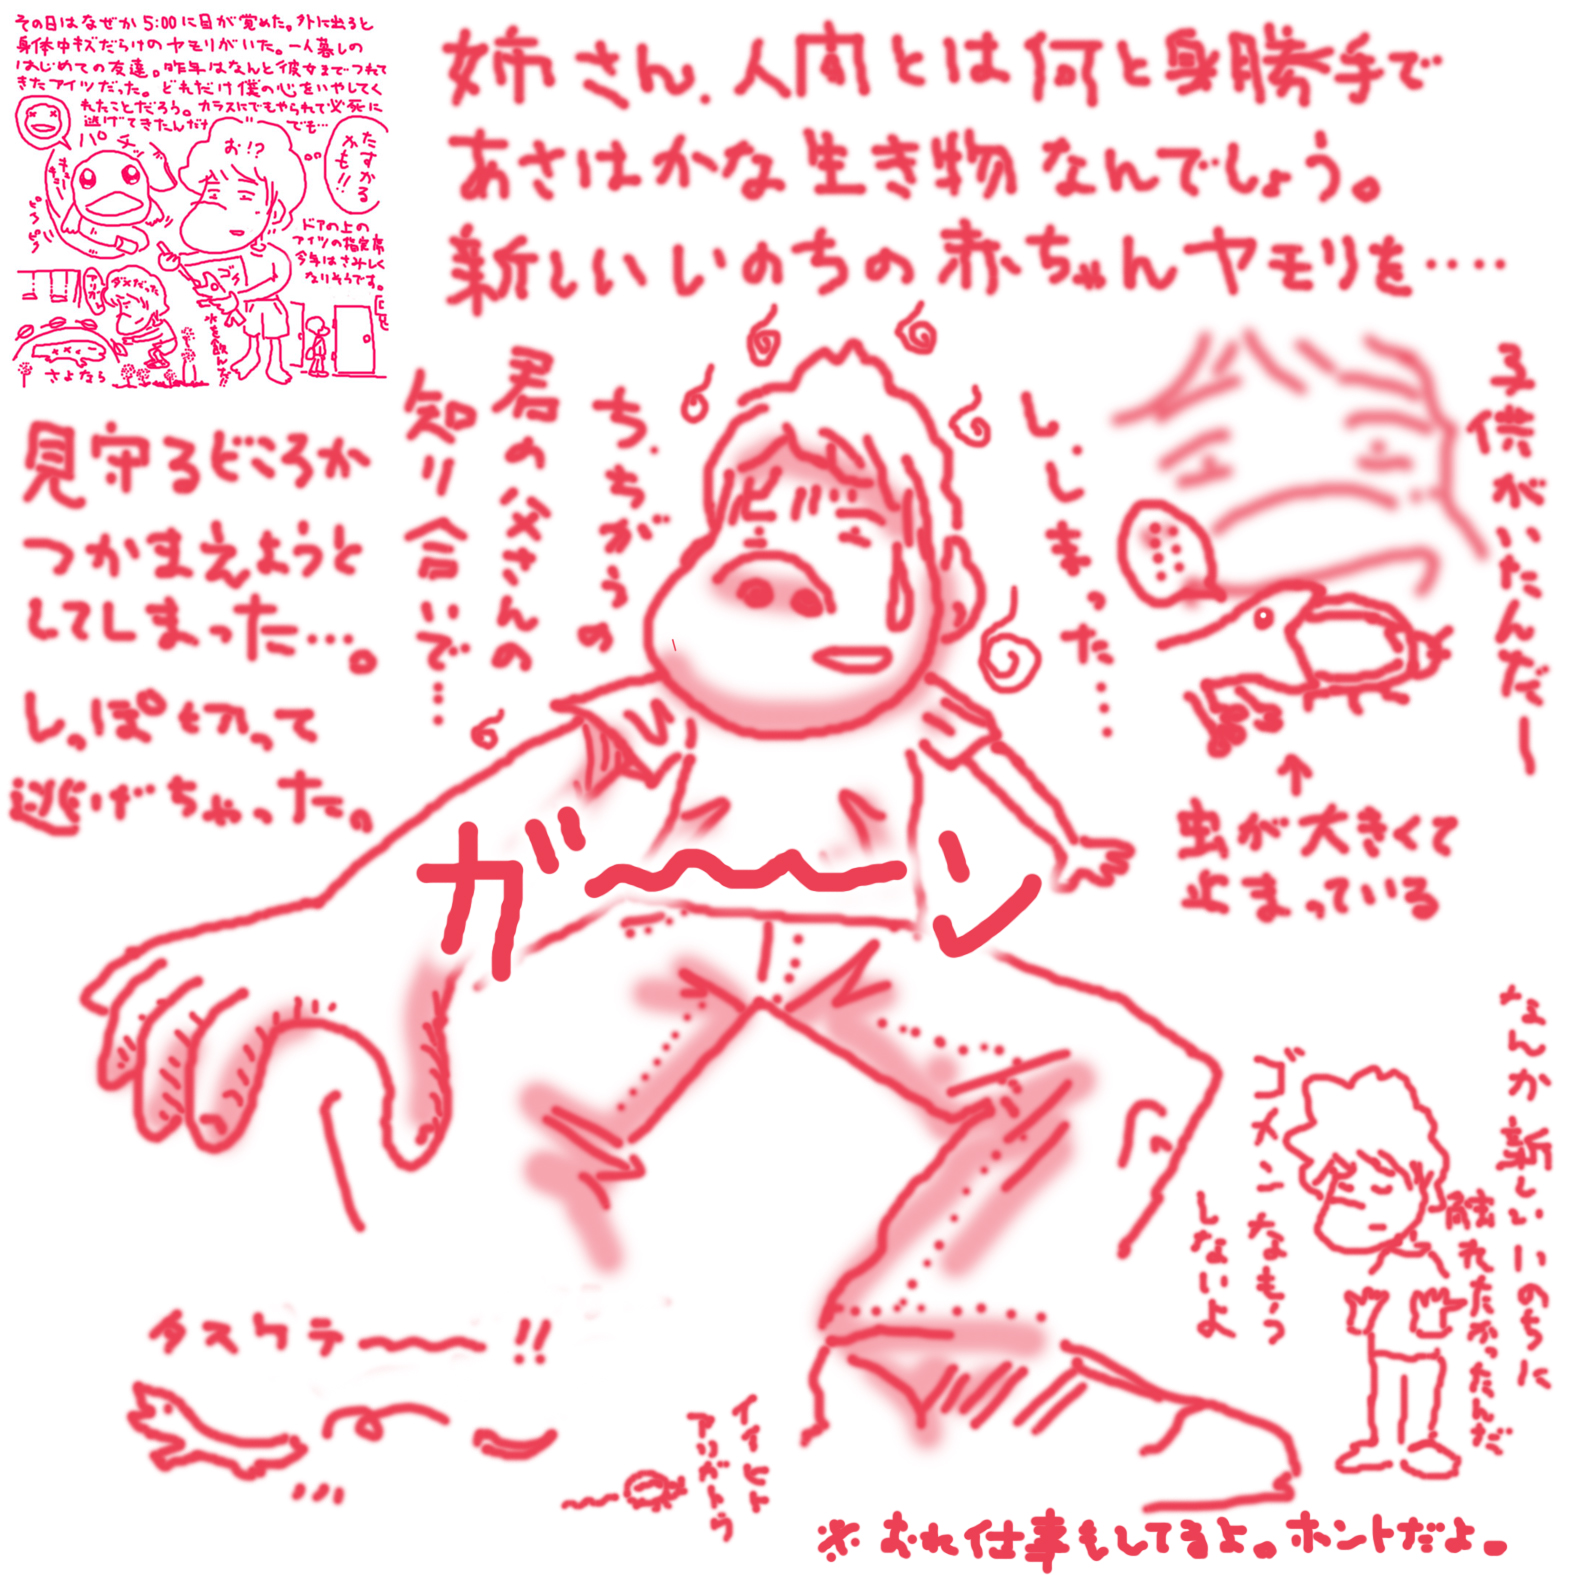 その日はなぜか5:00に目が覚めた。外に出ると
身体中キズだらけのヤモリがいた。一人暮しの
はじめての友達。昨年はなんと彼女までつれて
きたアイツだった。どれだけ僕の心をいやしてく
れたことだろう。カラスにでもやられて必死に
逃げてきたんだけど…でも…
パチッ
お!?
たすかるかも!!
ピクピク
ドアの上の
アイツの指定席
今年はさみしく
なりそうです。
ダメだった
水を飲んだ
さよなら
姉さん、人間とは何と身勝手で
あさはかな生き物なんでしょう。
新しいいのちの赤ちゃんヤモリを‥‥
子供がいたんだー
しまった…
し、
ち、ちがうの
君の父さんの
知り合いで…
見守るどころか
つかまえようと
してしまった…。
しっぽ切って
逃げちゃった。
↑
虫が大きくて
止まっている
ガ〜〜〜ン
なんか新しいいのちに
触れたかったんだ
ゴメンなもう
しないよ
タスケテ〜〜〜!!
イイヒト
アリガトウ
※おれ仕事もしてるよ。ホントだよ。